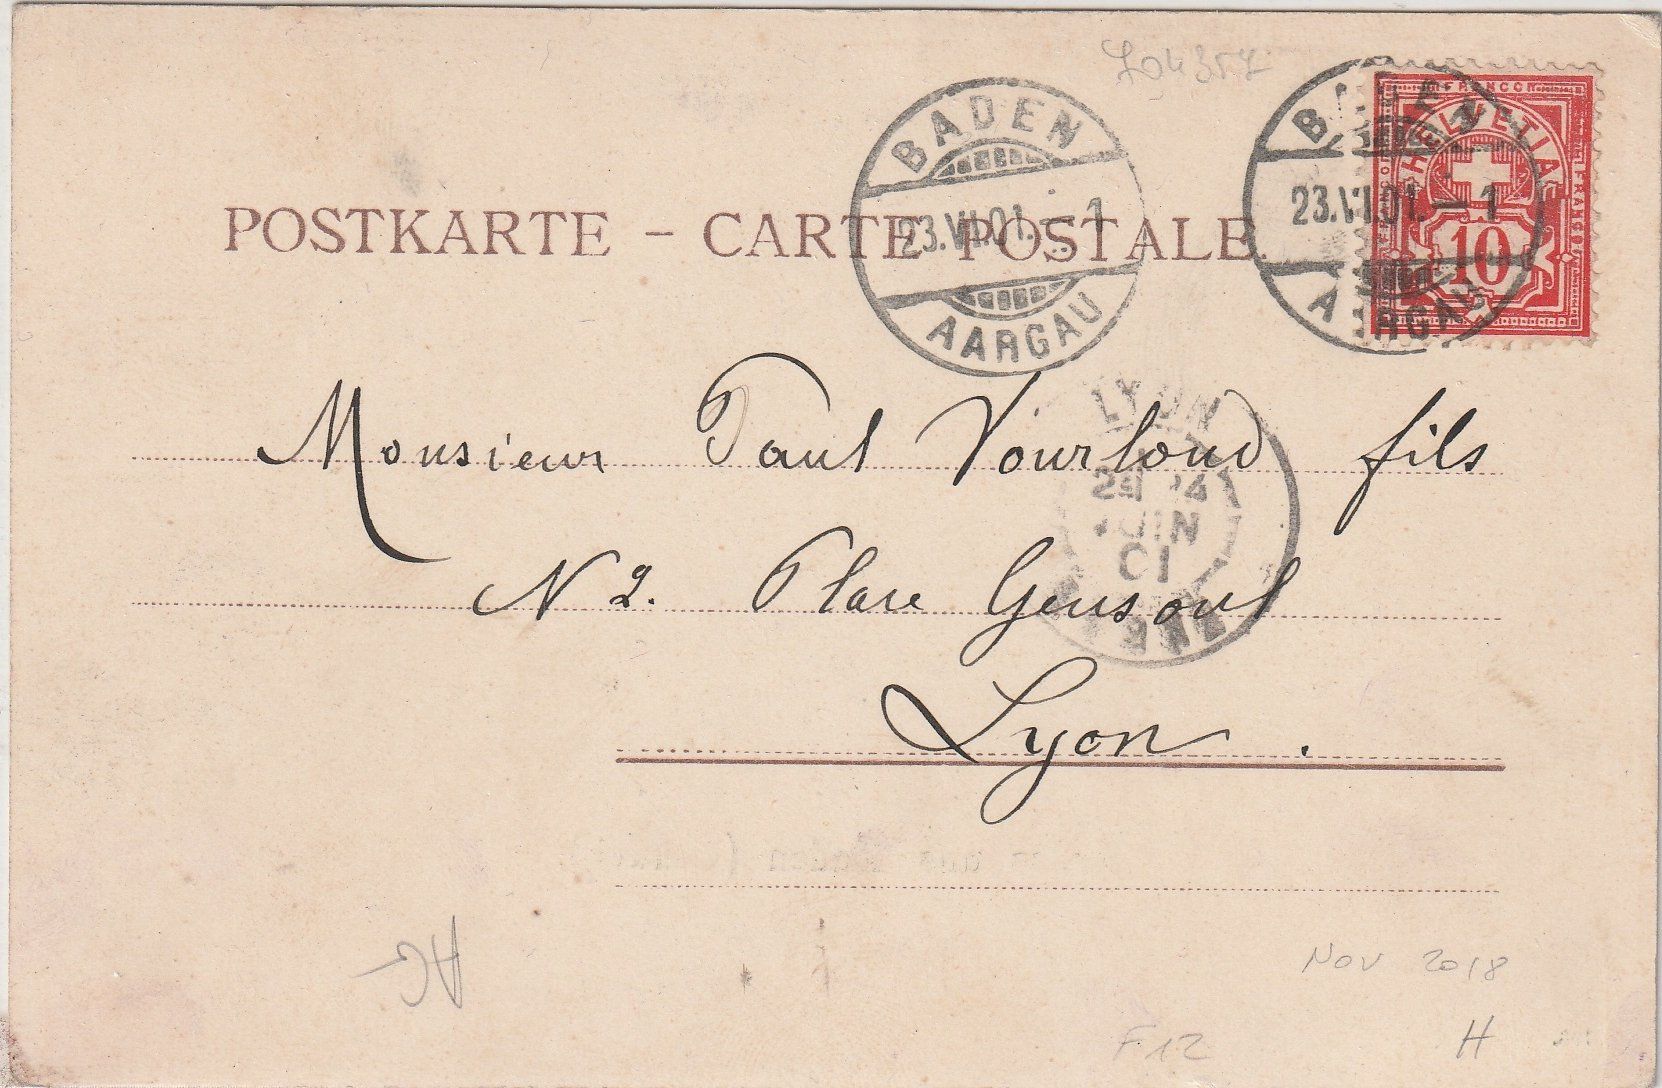 BADEN
23.VI.01.—1
AARGAU
BADEN
23.VI.01.—1
AARGAU
FRANCO
HELVETIA
10
POSTKARTE – CARTE POSTALE.
LYON
JUIN
01
Monsieur Paul Vourloud fils
N 2. Place Gensoul
Lyon.
AG
Nov 2018
F12
H